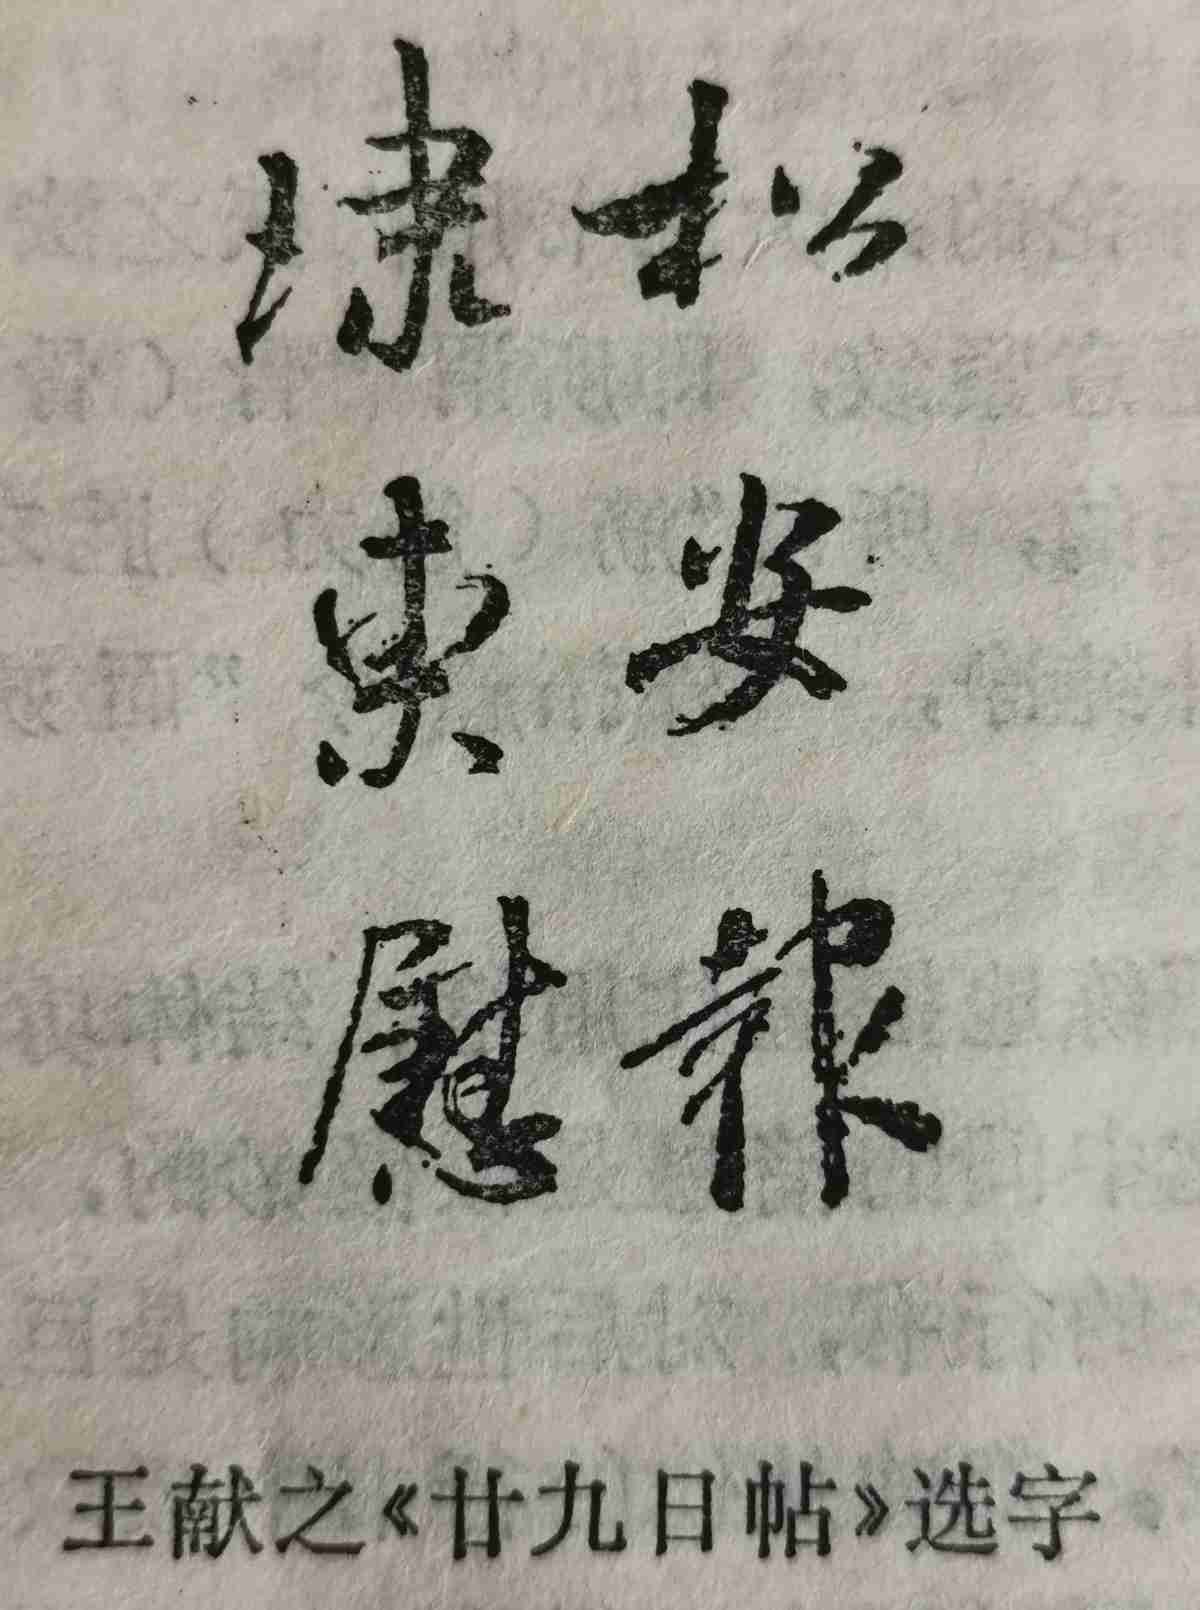 松安報
索慰
王献之《廿九日帖》选字